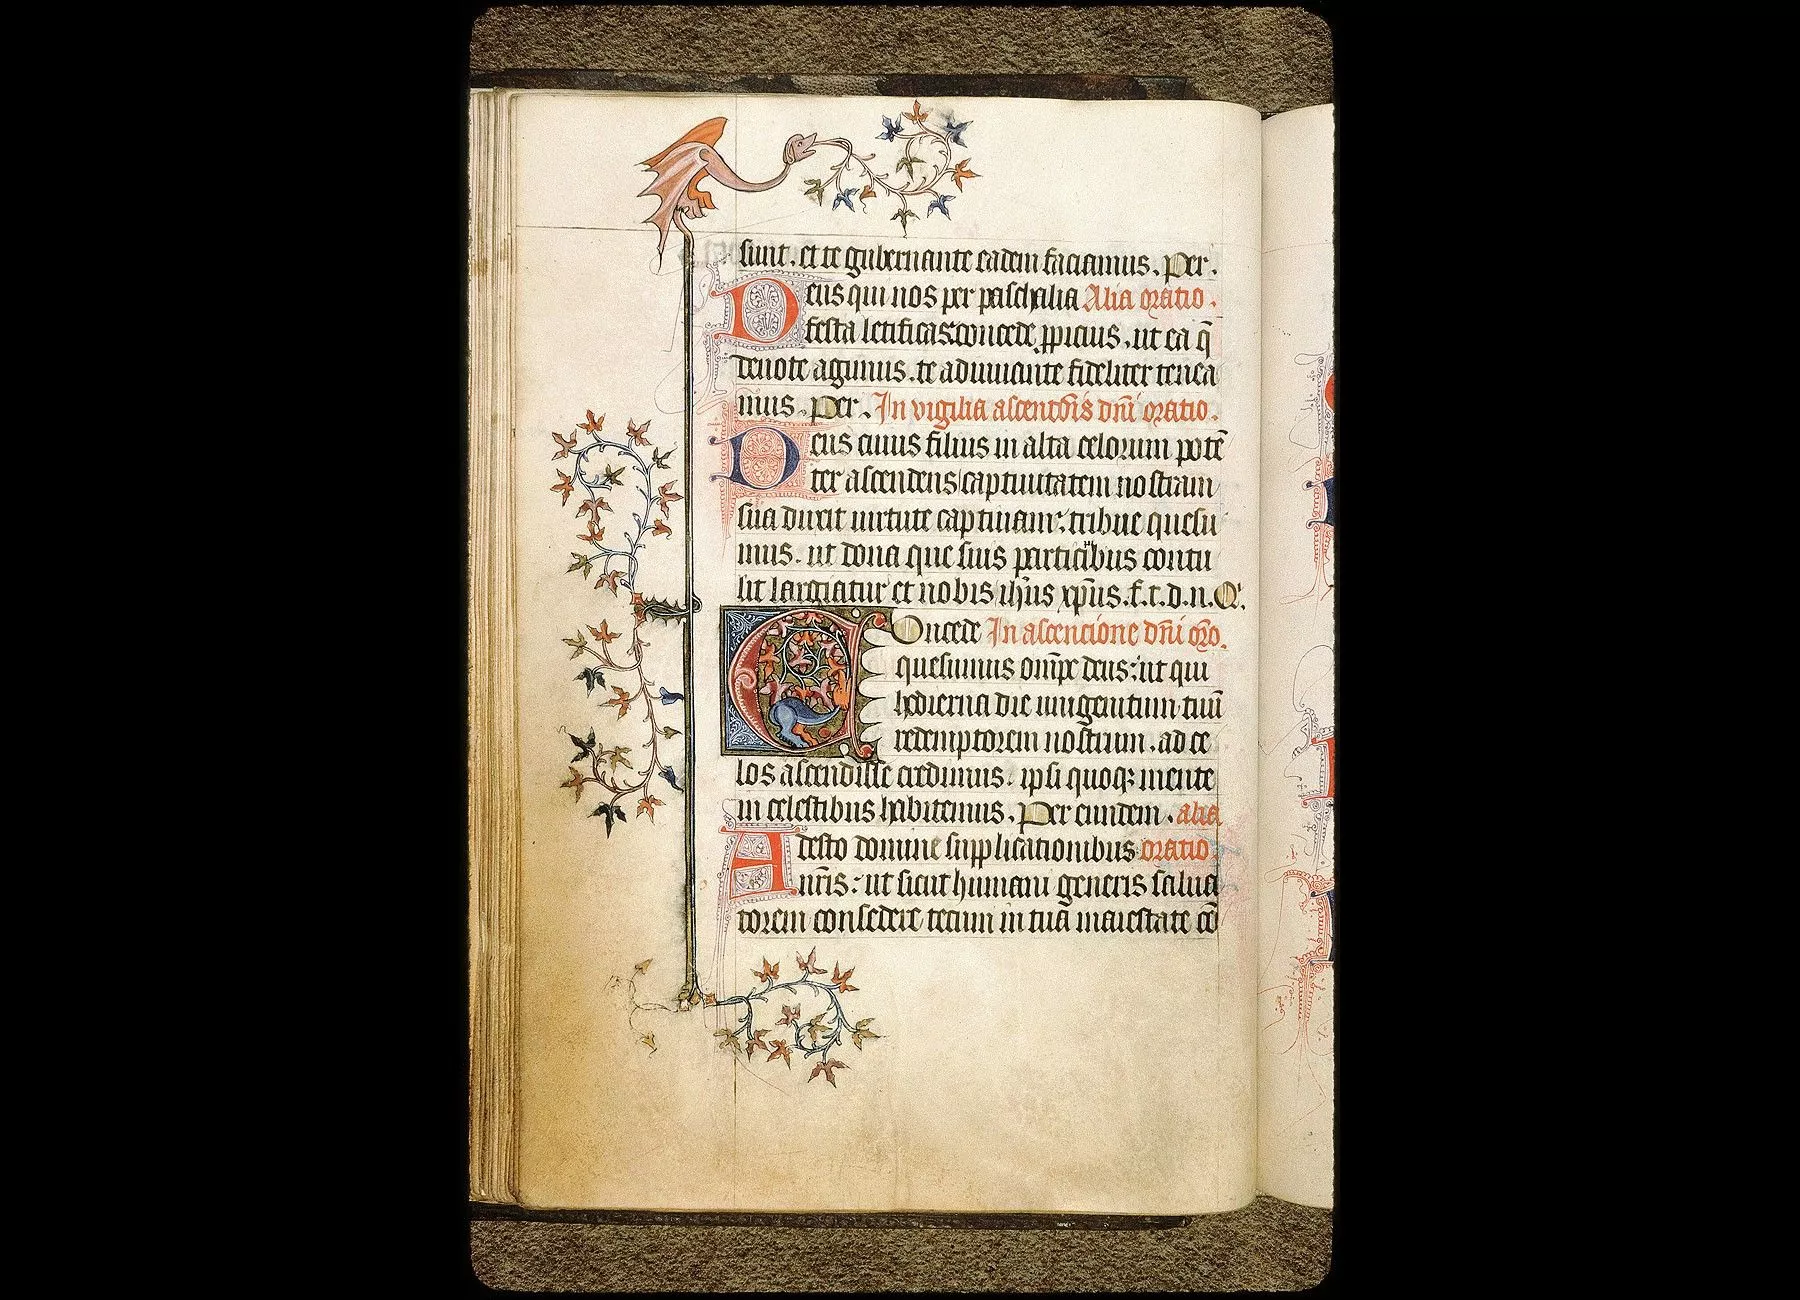 sunt. et te gubernante eadem faciamus. Per.
Deus qui nos per paschalia Alia oratio.
festa letificas concede ꝓpicius. ut ea q̄
deuote agimus. te adiuuante fideliter tenea
mus. Per. In vigilia ascensōis dn̄i oratio.
Deus cuius filius in alta celorum potē
ter ascendens captiuitatem nostram
sua duxit uirtute captiuam: tribue quesu
mus. ut dona que suis participibus contu
lit largiatur et nobis ih̄us xp̄us. f. t. d. n. Q'.
Concede In ascencione dn̄i or̄o.
quesumus omp̄c deus: ut qui
hodierna die unigenitum tuū
redemptorem nostrum. ad ce
los ascendisse credimus. ipsi quoqꝫ mente
in celestibus habitemus. Per eundem. alia
Adesto domine supplicationibus oratio
nr̄is: ut sicut humani generis salua
torem consedere tecum in tua maiestate cō